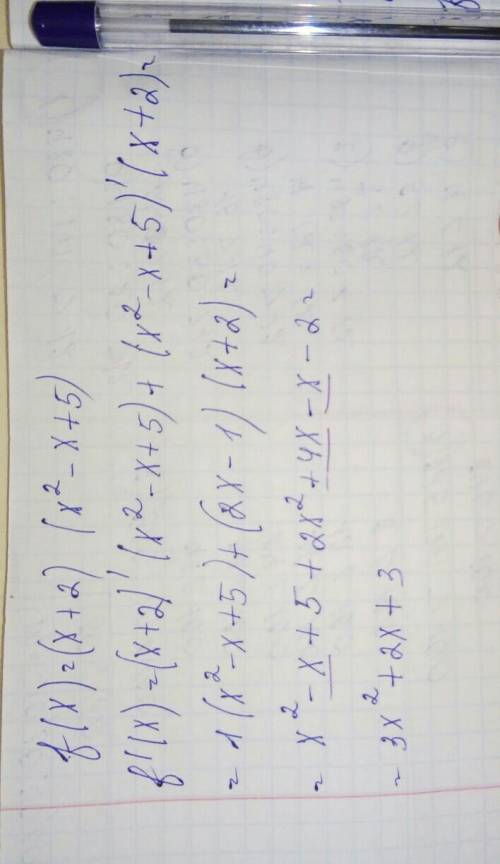 f(x)=(x+2)(x²-x+5)
f'(x)=(x+2)'(x²-x+5)+(x²-x+5)'(x+2)=
=1(x²-x+5)+(2x-1)(x+2)=
=x²-x+5+2x²+4x-x-2=
=3x²+2x+3